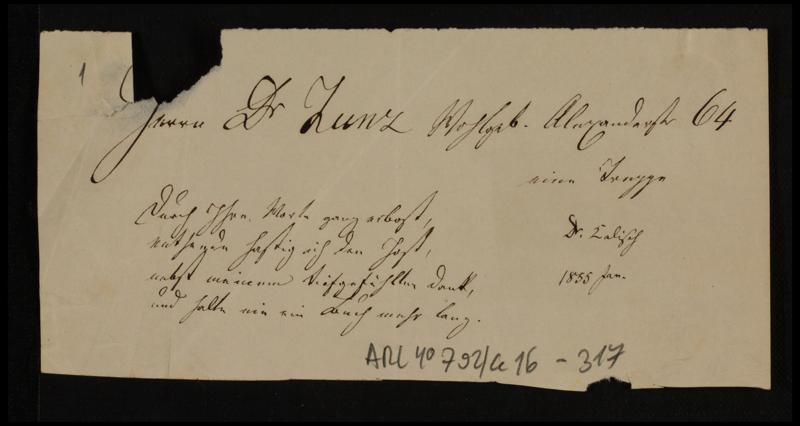 1
Herrn Dr Zunz Wohlgeb. Alexanderstr 64
eine Treppe
Durch Ihre Worte ganz erbost,
hastig ich den
nebst meinem tiefgefühlten Dank,
und halte nie ein Buch mehr lang.
Dr. Celisch
1855 Jan.
ARC 4° 792/ 16 - 317